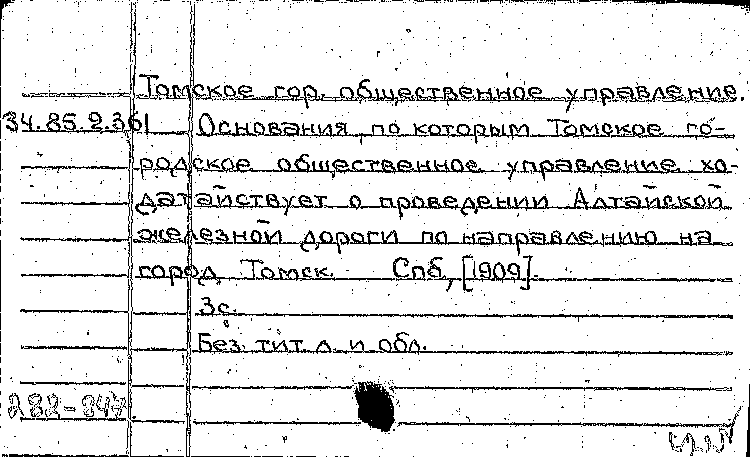 Томское гор. общественное управление.
34.85.2.361 Основания, по которым Томское го-
родское общественное управление хо-
датайствует о проведении Алтайской
железной дороги по направлению на
город Томск. Спб, [1909].
3с.
Без тит. л. и обл.
282-847